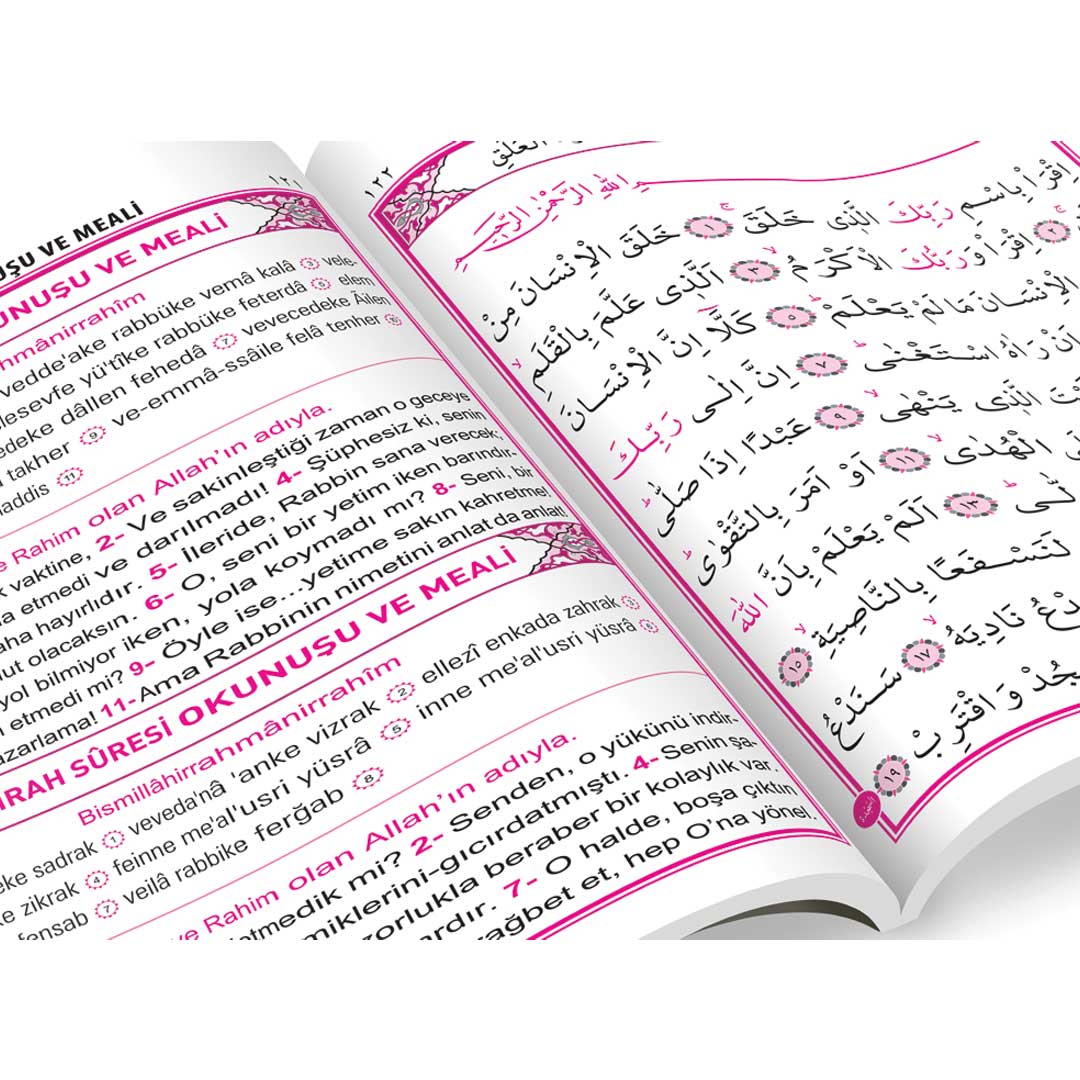 ١٢١
UŞU VE MEALİ
UNUŞU VE MEALİ
hmânirrahîm
vedde'ake rabbüke vemâ kalâ ③ vele-
lesevfe yü'tîke rabbüke feterdâ ⑤ elem
edeke dâllen fehedâ ⑦ vevecedeke Âilen
takher ⑨ ve-emmâ-ssâile felâ tenher ⑩
addis ⑪
e Rahim olan Allah'ın adıyla.
k vaktine, 2- Ve sakinleştiği zaman o geceye
a etmedi ve darılmadı! 4- Şüphesiz ki, senin
aha hayırlıdır. 5- İleride, Rabbin sana verecek;
ut olacaksın. 6- O, seni bir yetim iken barındır-
yol bilmiyor iken, yola koymadı mı? 8- Seni, bir
i etmedi mi? 9- Öyle ise...yetime sakın kahretme!
azarlama! 11- Ama Rabbinin nimetini anlat da anlat!
İRAH SÛRESİ OKUNUŞU VE MEALİ
Bismillâhirrahmânirrahîm
eke sadrak ① veveda'nâ 'anke vizrak ② ellezî enkada zahrak ③
ke zikrak ④ feinne me'al'usri yüsrâ ⑤ inne me'al'usri yüsrâ ⑥
fensab ⑦ veilâ rabbike ferğab ⑧
ve Rahim olan Allah'ın adıyla.
etmedik mi? 2- Senden, o yükünü indir-
miklerini-gıcırdatmıştı. 4- Senin şa-
zorlukla beraber bir kolaylık var.
ardır. 7- O halde, boşa çıktın
ağbet et, hep O'na yönel.
١٢٢
العلق
مِ اللّٰهِ الرَّحْمٰنِ الرَّحِيمِ
اِقْرَأْ بِاسْمِ رَبِّكَ الَّذِى خَلَقَ ﴿١﴾ خَلَقَ الْاِنْسَانَ مِنْ
﴿٢﴾ اِقْرَأْ وَرَبُّكَ الْاَكْرَمُ ﴿٣﴾ اَلَّذِى عَلَّمَ بِالْقَلَمِ
الْاِنْسَانَ مَا لَمْ يَعْلَمْ ﴿٥﴾ كَلَّا اِنَّ الْاِنْسَانَ
اَنْ رَاٰهُ اسْتَغْنٰى ﴿٧﴾ اِنَّ اِلٰى رَبِّكَ
تَ الَّذِى يَنْهٰى ﴿٩﴾ عَبْدًا اِذَا صَلّٰى
ى الْهُدٰى ﴿١١﴾ اَوْ اَمَرَ بِالتَّقْوٰى
لّٰى ﴿١٣﴾ اَلَمْ يَعْلَمْ بِاَنَّ اللّٰهَ
لَنَسْفَعًا بِالنَّاصِيَةِ ﴿١٥﴾
دْعُ نَادِيَهُ ﴿١٧﴾ سَنَدْعُ
جُدْ وَاقْتَرِبْ ﴿١٩﴾